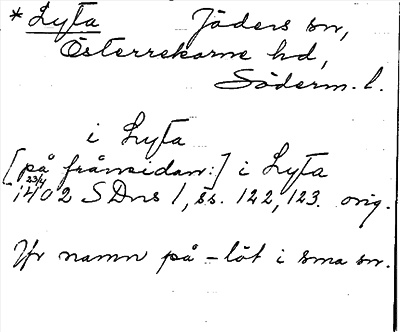 * Lyta Jäders sn,
Österrekarne hd,
Söderm. l.
i Lyta
[på frånsidan:] i Lyta
23/4
1402 SDns 1, ss. 122, 123. orig.
Jfr namn på -löt i sma sn.